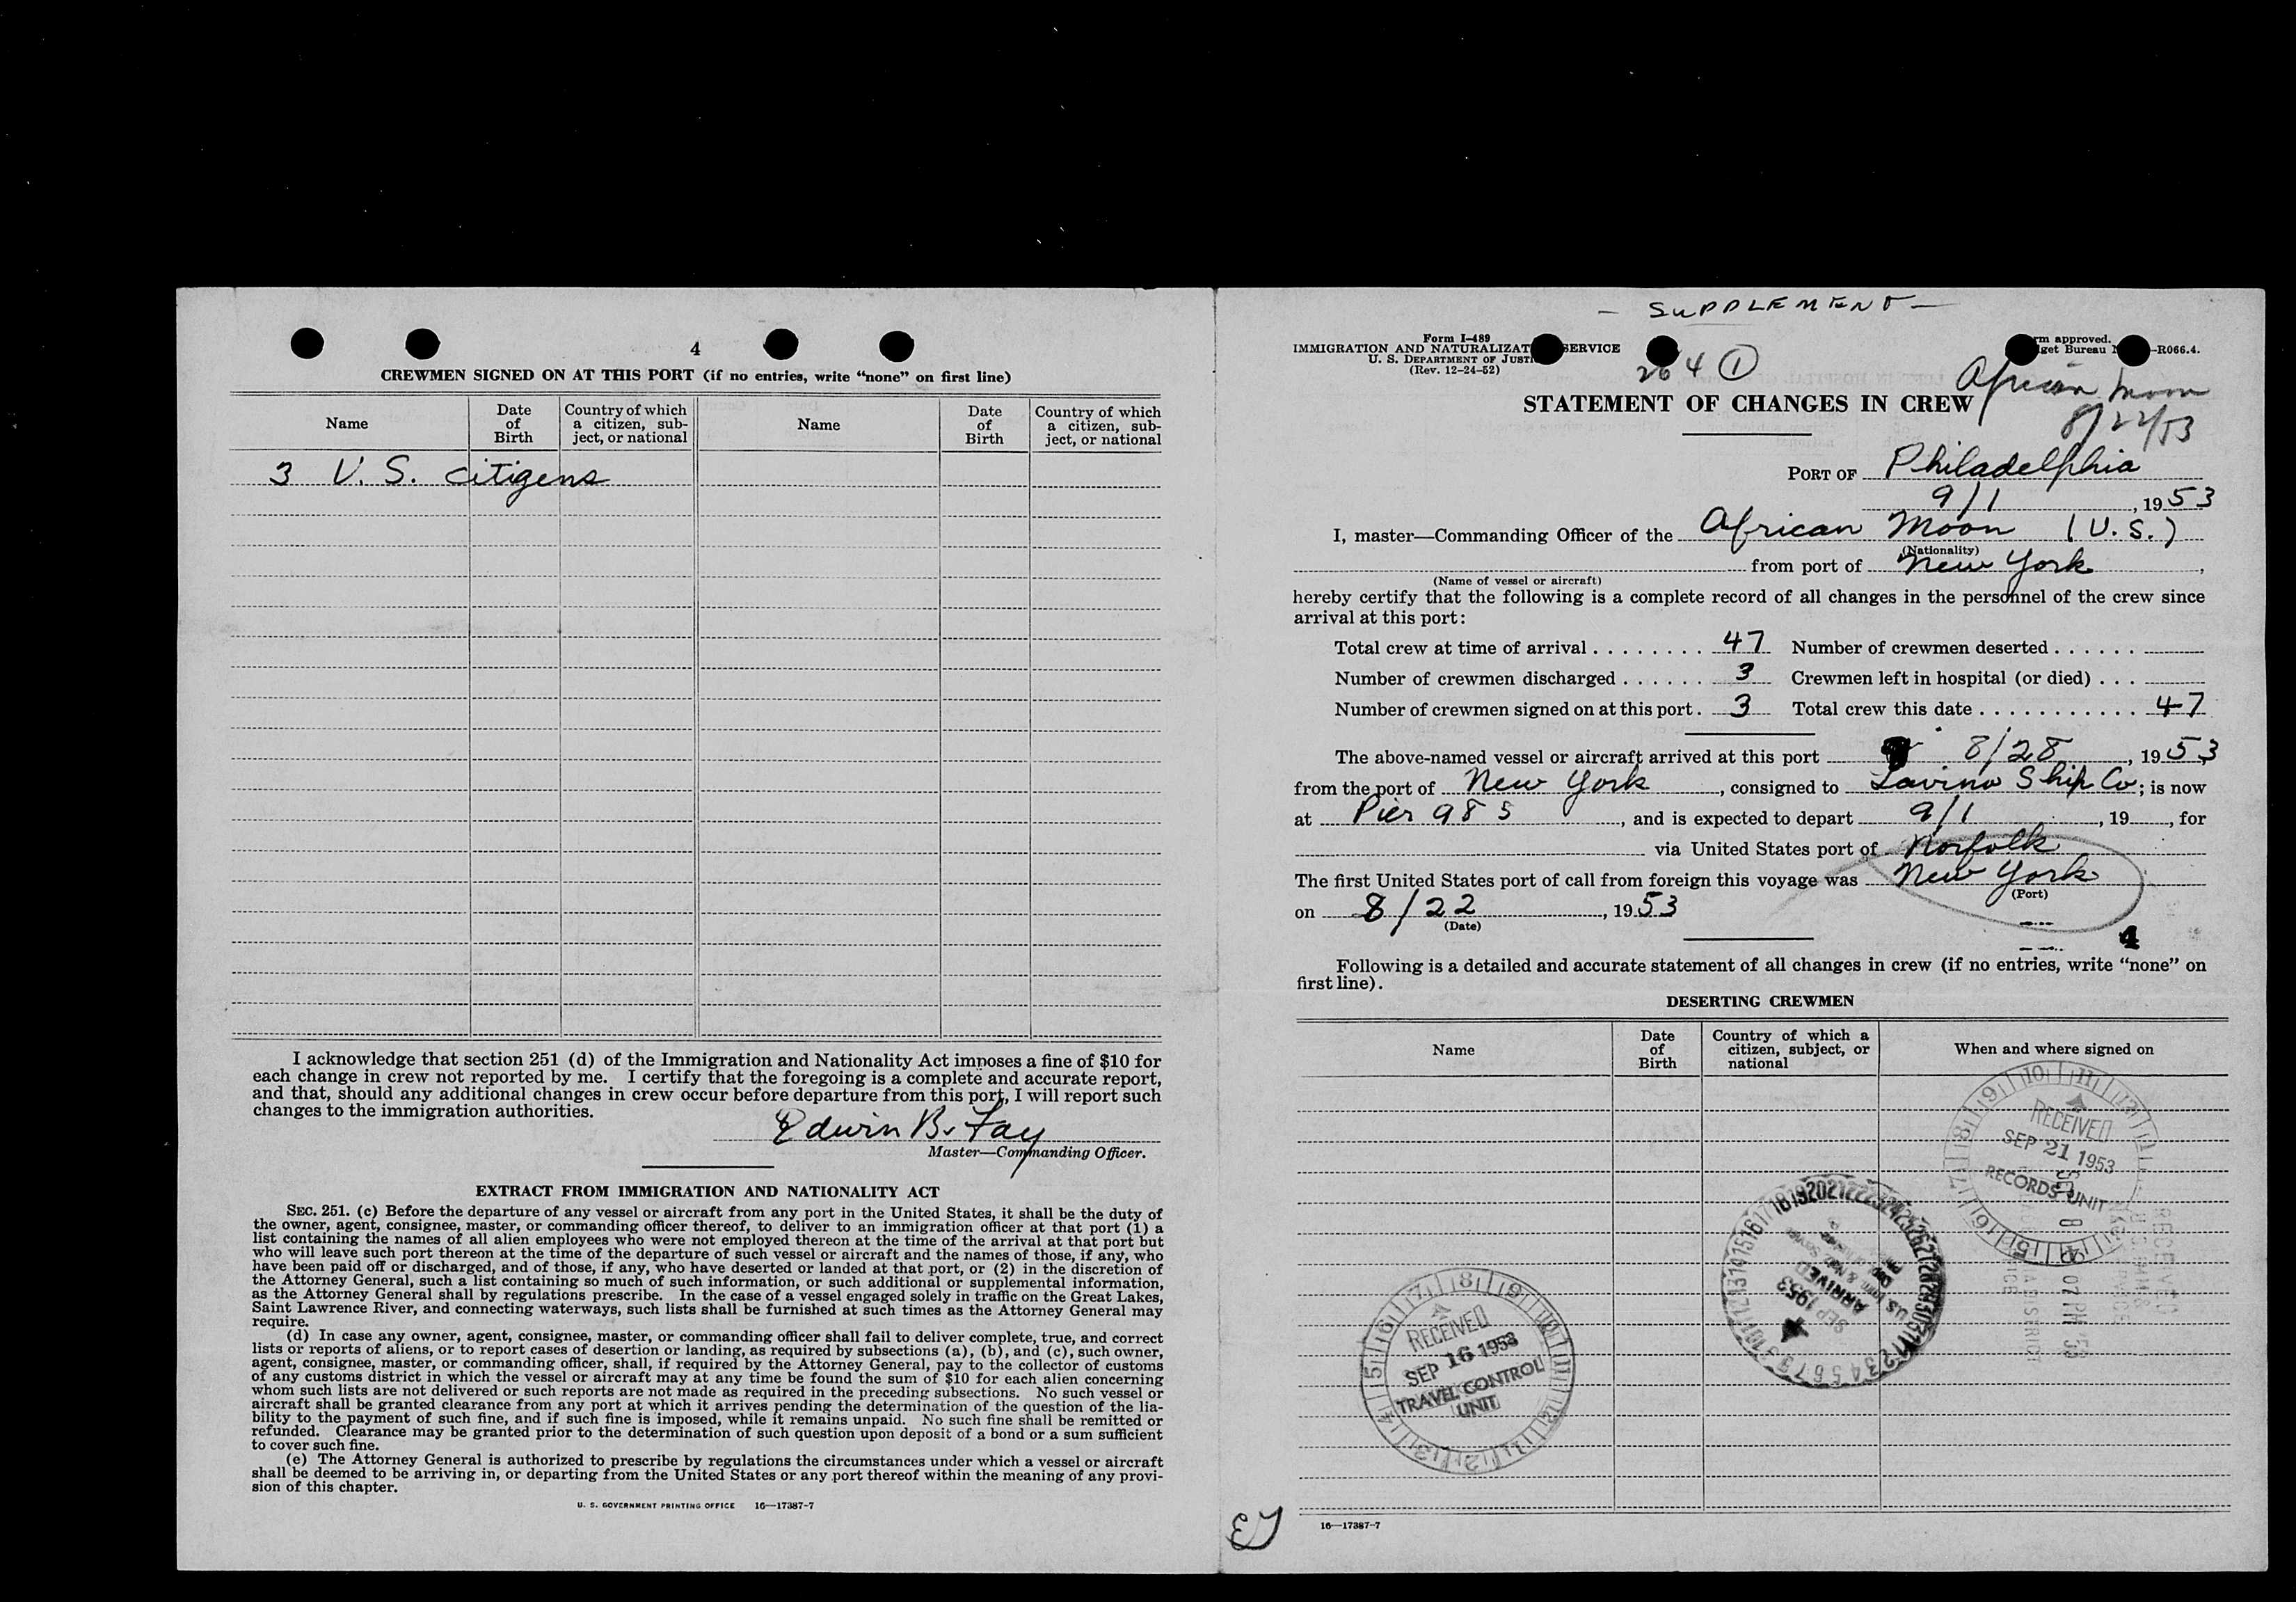 4
CREWMEN SIGNED ON AT THIS PORT (if no entries, write “none” on first line)
Name
Date of Birth
Country of which a citizen, subject, or national
Name
Date of Birth
Country of which a citizen, subject, or national
3 U. S. citizens
I acknowledge that section 251 (d) of the Immigration and Nationality Act imposes a fine of $10 for
each change in crew not reported by me. I certify that the foregoing is a complete and accurate report,
and that, should any additional changes in crew occur before departure from this port, I will report such
changes to the immigration authorities.
Edwin B. Fay
Master—Commanding Officer.
EXTRACT FROM IMMIGRATION AND NATIONALITY ACT
SEC. 251. (c) Before the departure of any vessel or aircraft from any port in the United States, it shall be the duty of
the owner, agent, consignee, master, or commanding officer thereof, to deliver to an immigration officer at that port (1) a
list containing the names of all alien employees who were not employed thereon at the time of the arrival at that port but
who will leave such port thereon at the time of the departure of such vessel or aircraft and the names of those, if any, who
have been paid off or discharged, and of those, if any, who have deserted or landed at that port, or (2) in the discretion of
the Attorney General, such a list containing so much of such information, or such additional or supplemental information,
as the Attorney General shall by regulations prescribe. In the case of a vessel engaged solely in traffic on the Great Lakes,
Saint Lawrence River, and connecting waterways, such lists shall be furnished at such times as the Attorney General may
require.
(d) In case any owner, agent, consignee, master, or commanding officer shall fail to deliver complete, true, and correct
lists or reports of aliens, or to report cases of desertion or landing, as required by subsections (a), (b), and (c), such owner,
agent, consignee, master, or commanding officer, shall, if required by the Attorney General, pay to the collector of customs
of any customs district in which the vessel or aircraft may at any time be found the sum of $10 for each alien concerning
whom such lists are not delivered or such reports are not made as required in the preceding subsections. No such vessel or
aircraft shall be granted clearance from any port at which it arrives pending the determination of the question of the lia-
bility to the payment of such fine, and if such fine is imposed, while it remains unpaid. No such fine shall be remitted or
refunded. Clearance may be granted prior to the determination of such question upon deposit of a bond or a sum sufficient
to cover such fine.
(e) The Attorney General is authorized to prescribe by regulations the circumstances under which a vessel or aircraft
shall be deemed to be arriving in, or departing from the United States or any port thereof within the meaning of any provi-
sion of this chapter.
U. S. GOVERNMENT PRINTING OFFICE 16—17387-7
— SUPPLEMENT —
Form I-489
IMMIGRATION AND NATURALIZAT SERVICE
U. S. DEPARTMENT OF JUSTI
(Rev. 12-24-52)
264 1
rm approved.
get Bureau -R066.4.
African Moon
8/22/53
STATEMENT OF CHANGES IN CREW
PORT OF Philadelphia
9/1, 1953
I, master—Commanding Officer of the African Moon (U.S.)
(Nationality)
from port of New York,
(Name of vessel or aircraft)
hereby certify that the following is a complete record of all changes in the personnel of the crew since
arrival at this port:
Total crew at time of arrival . . . . . . . . 47 Number of crewmen deserted . . . . . .
Number of crewmen discharged . . . . . . 3 Crewmen left in hospital (or died) . . .
Number of crewmen signed on at this port . 3 Total crew this date . . . . . . . . . . . . 47
The above-named vessel or aircraft arrived at this port 8/28, 1953
from the port of New York, consigned to Lavino Ship Co; is now
at Pier 98 S, and is expected to depart 9/1, 19, for
via United States port of Norfolk
The first United States port of call from foreign this voyage was New York
(Port)
on 8/22, 1953
(Date)
4
Following is a detailed and accurate statement of all changes in crew (if no entries, write “none” on
first line).
DESERTING CREWMEN
Name
Date of Birth
Country of which a citizen, subject, or national
When and where signed on
RECEIVED
SEP 21 1953
RECORDS UNIT
ARRIVED
SEP 1953
RECEIVED
SEP 16 1953
TRAVEL CONTROL
UNIT
16—17387-7